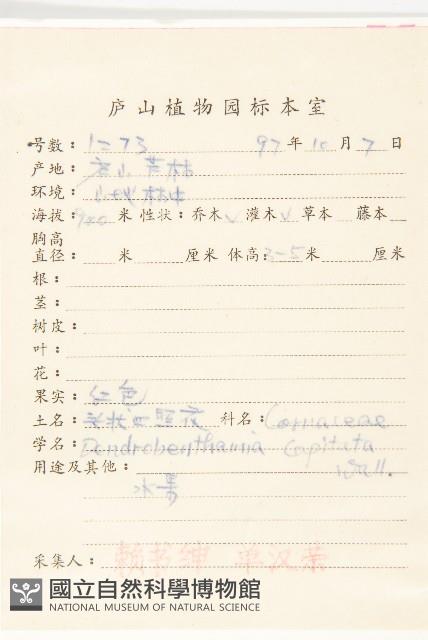 庐山植物园标本室
号数：1273 97年10月7日
产地：庐山芦林
环境：山地林中
海拔：900米 性状：乔木✓灌木✓草本 藤本
胸高
直径： 米 厘米 体高：3-5米 厘米
根：
茎：
树皮：
叶：
花：
果实：红色
土名：头状四照花 科名：Cornaceae
学名：Dendrobenthamia Capitata
用途及其他： Wall.
水果
采集人：赖书绅 单汉荣
國立自然科學博物館
NATIONAL MUSEUM OF NATURAL SCIENCE